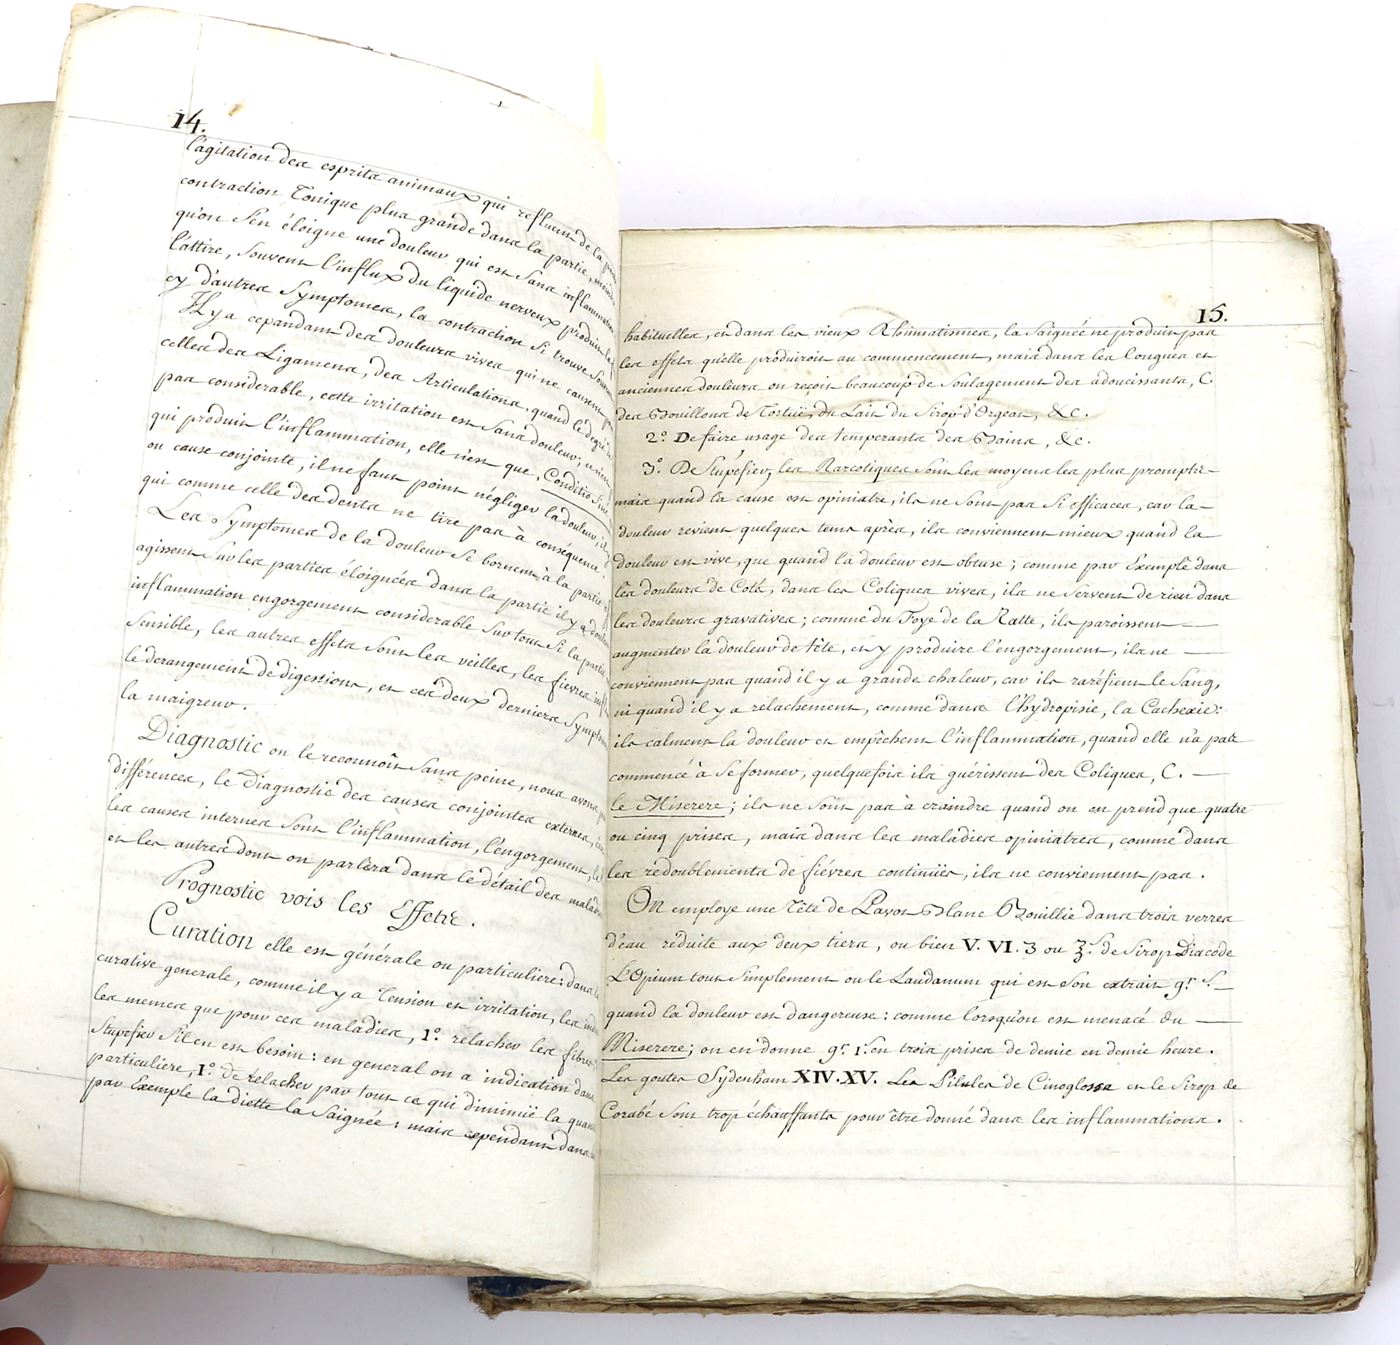 14.
l'agitation des esprits animaux qui refluent de la
contraction Tonique plus grande dans la partie, moins
qu'on S'en éloigne une douleur qui est Sans inflammation
l'attire, Souvent l'influx du liquide nerveux produit
cy d'autres Symptomes, la contraction Si trouve Souvent
Il y a cependant des douleurs vives qui ne causent
celles des Ligamens, des Articulations, quand le degré
pas considerable, cette irritation est Sans douleur,
qui produit l'inflammation, elle n'est que, Conditio Sine
ou cause conjointe, il ne faut point négliger la douleur,
qui comme celle des dents ne tire pas à conséquence.
Les Symptomes de la douleur Se bornent à la partie
agissent Sur les parties éloignées dans la partie il y a
inflammation engorgement considerable Sur tout Si la partie
Sensible, les autres effets Sont les veilles, les fievres
le derangement de digestions, et ces deux derniers Symptomes
la maigreur.
Diagnostic on le reconnoît Sans peine, nous avons
différences, le Diagnostic des causes conjointes externes,
les causes internes Sont l'inflammation, l'engorgement,
et les autres dont on parlera dans le détail des maladies
Prognostic vois les Effets.
Curation elle est générale ou particuliere: dans la
curative generale, comme il y a Tension et irritation, les
les memes que pour ces maladies, 1.° relacher les fibres,
Stupefier S'il en est besoin: en general on a indication dans
particuliere, 1.° De relacher par tout ce qui diminüe la
par Exemple la diette la Saignée: mais cependant dans
15.
habituelles, et dans les vieux Rhumatismes, la Saignée ne produit pas
les effets qu'elle produiroit au commencement, mais dans les longues et
anciennes douleurs on reçoit beaucoup de Soulagement des adoucissants, C.
des Bouillons de Tortuë, du Lait du Sirop d'Orgeat, &c.
2.° De faire usage des temperants des Bains, &c.
3.° De Stupéfier, les Narcotiques Sont les moyens les plus prompts
mais quand la cause est opiniatre, ils ne Sont pas Si efficaces, car la
douleur revient quelques tems après, ils conviennent mieux quand la
douleur est vive, que quand la douleur est obtuse; comme par Exemple dans
les douleurs de Coté, dans les Coliques vives, ils ne Servent de rien dans
les douleurs gravatives; comme du Foye de la Ratte, ils paroissent
augmenter la douleur de tête, et y produire l'engorgement, ils ne
conviennent pas quand il y a grande chaleur, car ils raréfient le Sang,
ni quand il y a relachement, comme dans l'hydropisie, la Cachexie:
ils calment la douleur et empêchent l'inflammation, quand elle n'a pas
commencé à Se former, quelquefois ils guérissent des Coliques, C.
le Miserere; ils ne Sont pas à craindre quand on en prend que quatre
ou cinq prises, mais dans les maladies opiniatres, comme dans
les redoublements de fiévres continües, ils ne conviennent pas.
On employe une Tête de Pavot Blanc Bouillie dans trois verres
d'eau réduite aux deux tiers, ou bien V. VI. ʒ ou ℥ S. de Sirop Diacode
L'Opium tout Simplement ou le Laudanum qui est Son extrait gr. S.
quand la douleur est dangereuse: comme lorsqu'on est menacé du
Miserere; on en donne gr. 1. en trois prises de demie en demie heure.
Les goutes Sydenham XIV. XV. Les Pilules de Cinoglosse et le Sirop de
Corabé Sont trop échauffants pour être donné dans les inflammations.